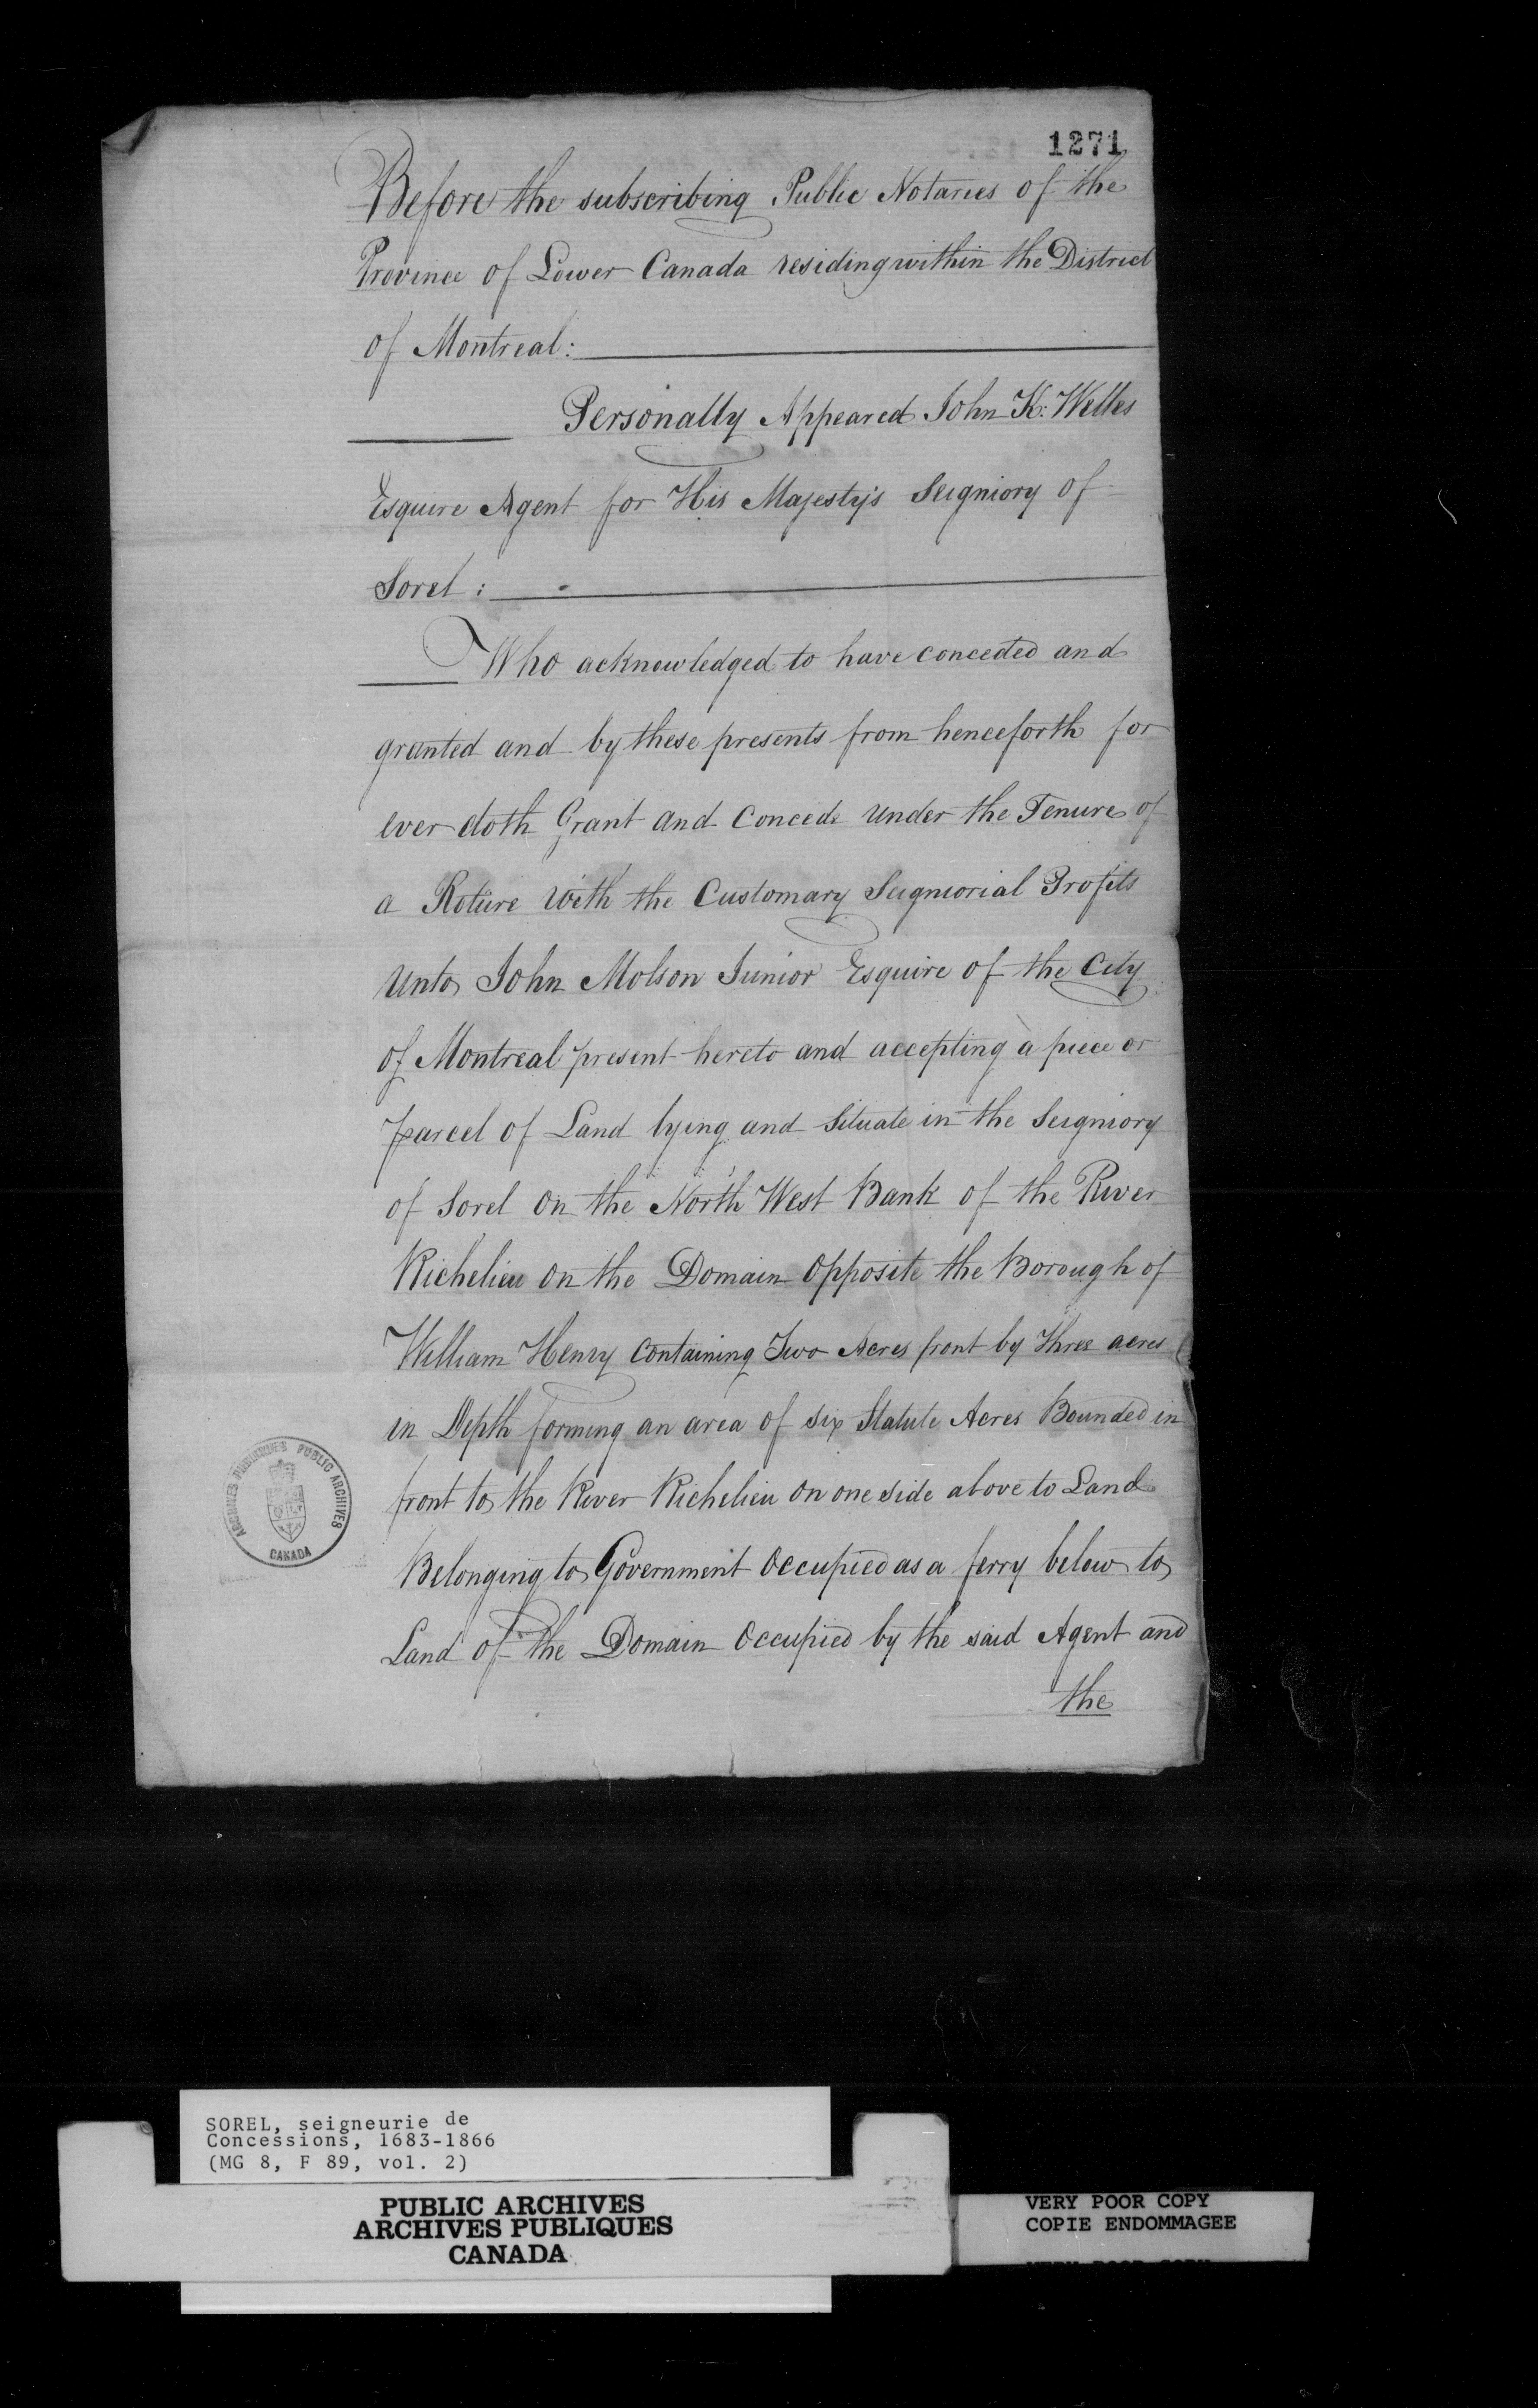 1271
Before the subscribing Public Notaries of the
Province of Lower Canada residing within the District
of Montreal:
Personally Appeared John K: Welles
Esquire Agent for His Majesty's Seigniory of
Sorel:
Who acknowledged to have conceded and
granted and by these presents from henceforth for
ever doth Grant and Concede under the Tenure of
a Roture with the Customary Seigniorial Profits
unto John Molson Junior Esquire of the City
of Montreal present hereto and accepting a piece or
parcel of Land lying and Situate in the Seigniory
of Sorel on the North West Bank of the River
Richelieu on the Domain Opposite the Borough of
William Henry Containing Two Acres front by three acres
in Depth forming an area of six Statute Acres Bounded in
front to the River Richelieu on one side above to Land
Belonging to Government Occupied as a ferry below to
Land of the Domain Occupied by the said Agent and
the
ARCHIVES PUBLIQUES PUBLIC ARCHIVES
CANADA
SOREL, seigneurie de
Concessions, 1683-1866
(MG 8, F 89, vol. 2)
PUBLIC ARCHIVES
ARCHIVES PUBLIQUES
CANADA
VERY POOR COPY
COPIE ENDOMMAGEE
VERY POOR COPY